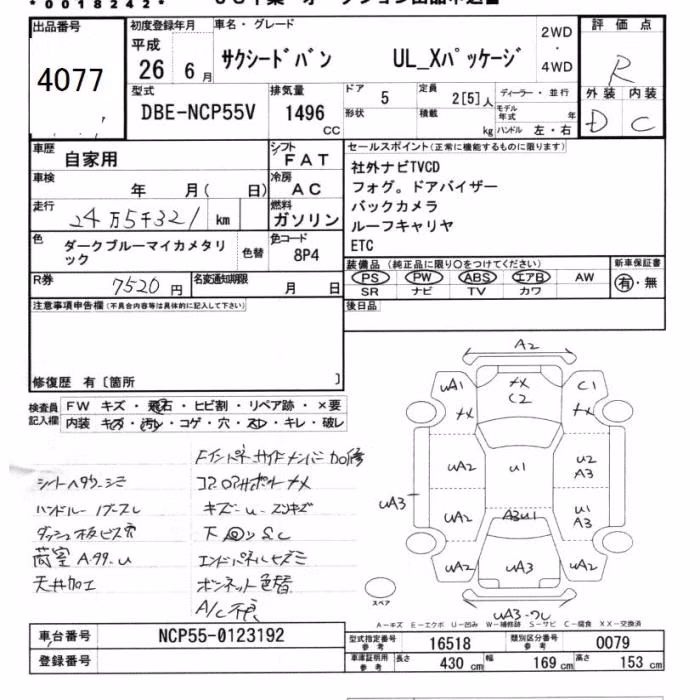 * 0 0 1 8 2 4 2 *
出品番号
4077
初度登録年月
平成
26 年 6 月
車名・グレード
サクシードバン UL_Xパッケージ
2WD
・
4WD
評価点
R
外装 内装
D C
型式
DBE-NCP55V
排気量
1496
CC
ドア 5
形状
定員 2[5]人
積載 kg
ディーラー・並行
モデル年式 年
ハンドル 左・右
車歴 自家用
シフト FAT
車検 年 月( 日)
冷房 AC
走行 24万5千321 km
燃料 ガソリン
色 ダークブルーマイカメタリック
色替
色コード 8P4
R券 7520 円
名変通知期限 月 日
セールスポイント(正常に機能するものに限ります)
社外ナビTVCD
フォグ。ドアバイザー
バックカメラ
ルーフキャリヤ
ETC
装備品 (純正品に限り○をつけてください)
PS PW ABS エアB AW
SR ナビ TV カワ
新車保証書
有・無
後日品
注意事項申告欄(不具合内容等は具体的に記入して下さい)
修復歴 有〔箇所 〕
検査員記入欄
FW キズ・飛石・ヒビ割・リペア跡・×要
内装 キズ・汚レ・コゲ・穴・スレ・キレ・破レ
Fインパネサイドメンバー加修
シートヘタリ シミ
コアサポートメ
ハンドル ノブスレ
キズ-u-スリキズ
ダッシュ板ビス穴
下回りS.C
荷室 A.タタ.u
天井加工
ボンネット色替
A/C不良
A2
uA1
メ
メ
C2
C1
メ
uA2
u1
u2
A3
uA3
uA2
A3u1
u1
A3
uA2
uA3
uA2
uA3-ワレ
スペア
A-キズ E-エクボ U-凹み W-補修跡 S-サビ C-腐食 XX-交換済
車台番号 NCP55-0123192
登録番号
型式指定番号 参考 16518
類別区分番号 参考 0079
車庫証明用 参考
長さ 430 cm
幅 169 cm
高さ 153 cm